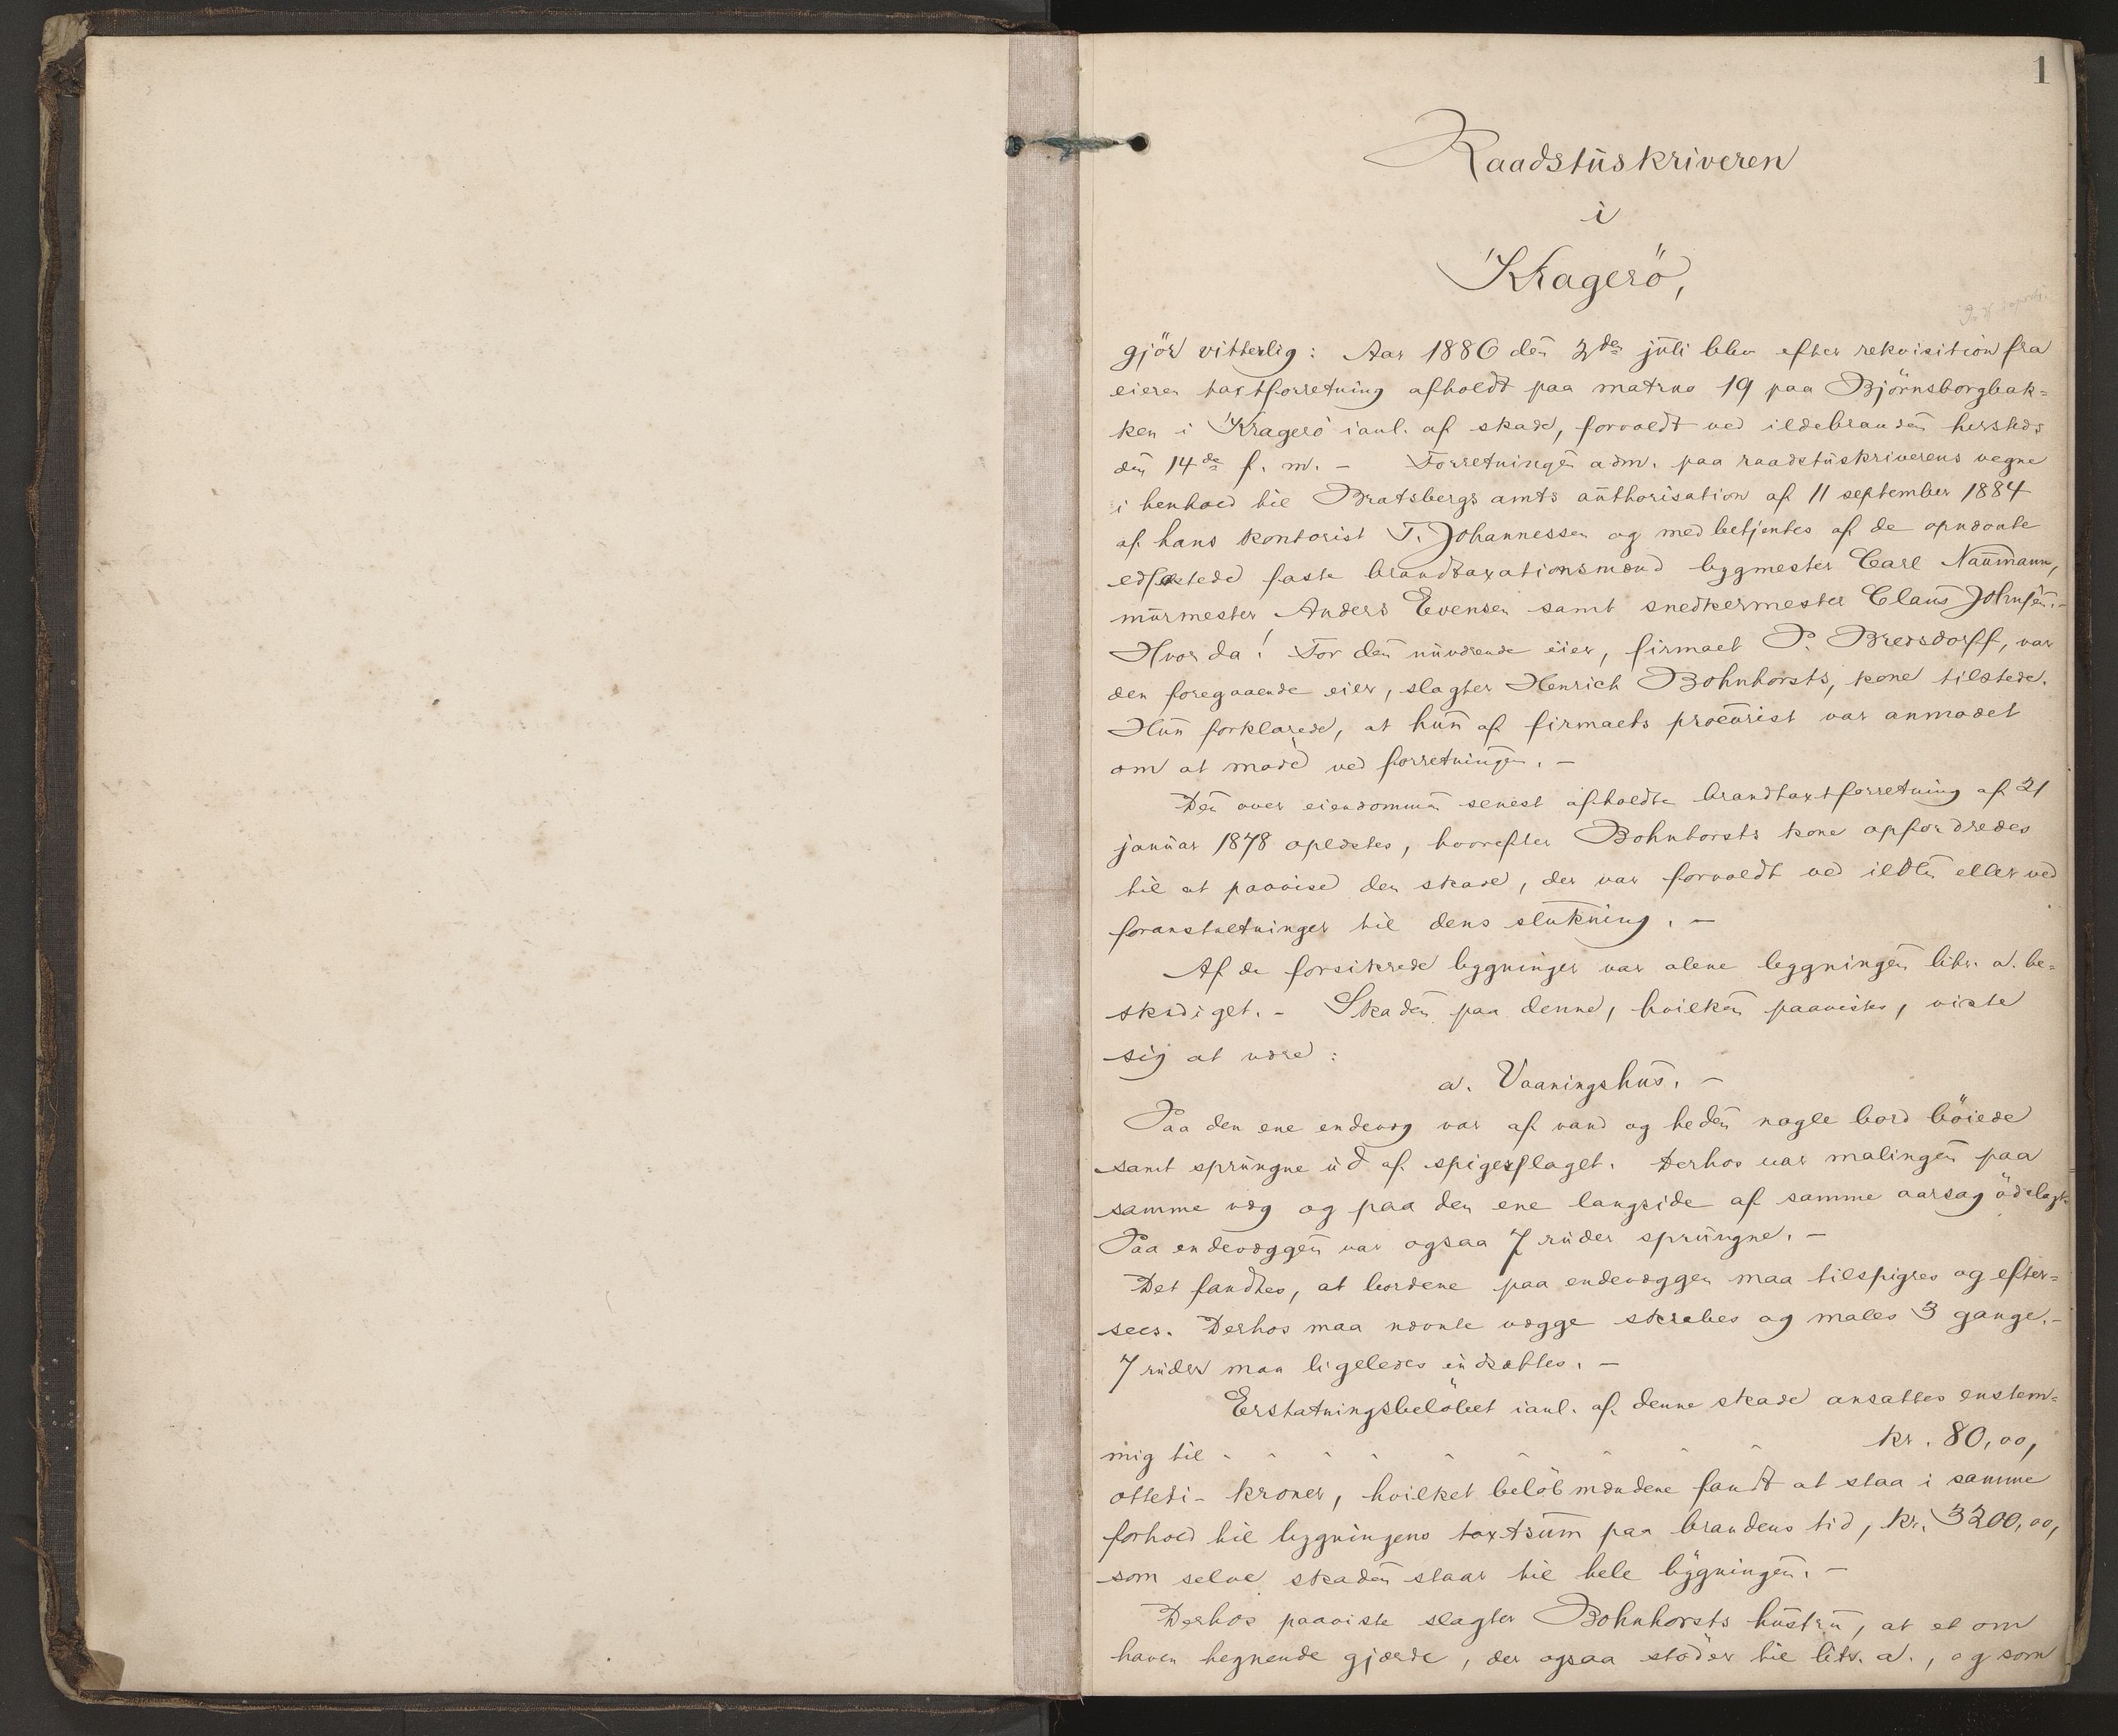 1
Raadstuskriveren
i
Kragerö,
gjör vitterlig: Aar 1886 den 2den juli blev efter rekvisition fra
eieren taxtforretning afholdt paa matrno 19 paa Björnsborgbak=
ken i Kragerö ianl. af skade, forvoldt ved ildebranden hersteds
den 14de f. m. - Forretningen adm. paa raadstuskriverens vegne
i henhold til Bratsbergs amts authorisation af 11 september 1884
af hans kontorist T. Johannessen og med betjentes af de opnævnte
edfæstede faste brandtaxationsmænd bygmester Carl Naumann,
murmester Anders Evensen samt snedkermester Claus Johnsen. -
Hvor da! For den nuværende eier, firmaet P. Bredsdorff, var
den foregaaende eier, slagter Henrich Bohnhorsts, kone tilstede.
Hun forklarede, at hun af firmaets procurist var anmodet
om at möde ved forretningen. -
Den over eiendommen senest afholdte brandtaxtforretning af 21
januar 1878 oplæstes, hvorefter Bohnhorsts kone opfordredes
til at paavise den skade, der var forvoldt ved ilden eller ved
foranstaltninger til dens slukning. -
Af de forsikrede bygninger var alene bygningen litr. a. be=
skadiget. - Skaden paa denne, hvilken paavistes, viste
sig at være:
a. Vaaningshus. -
Paa den ene endevæg var af vand og heden nogle bord böiede
samt sprungne ud af spigerslaget. Derhos var malingen paa
samme væg og paa den ene langside af samme aarsag ödelagt.
Paa endevæggen var ogsaa 7 ruder sprungne. -
Det fandtes, at bordene paa endevæggen maa tilspigres og efter=
sees. Derhos maa nævnte vægge skrabes og males 3 gange. -
7 ruder maa ligeledes indsættes. -
Erstatningsbelöbet ianl. af denne skade ansattes enstem=
mig til - - - - - - - - - kr. 80,00,
otteti- kroner, hvilket belöb mændene fandt at staa i samme
forhold til bygningens taxtsum paa brandens tid, kr. 3200,00,
som selve skaden staar til hele bygningen. -
Derhos paaviste slagter Bohnhorsts hustru, at et om
haven hegnende gjærde, der ogsaa stöder til litr. a., og som